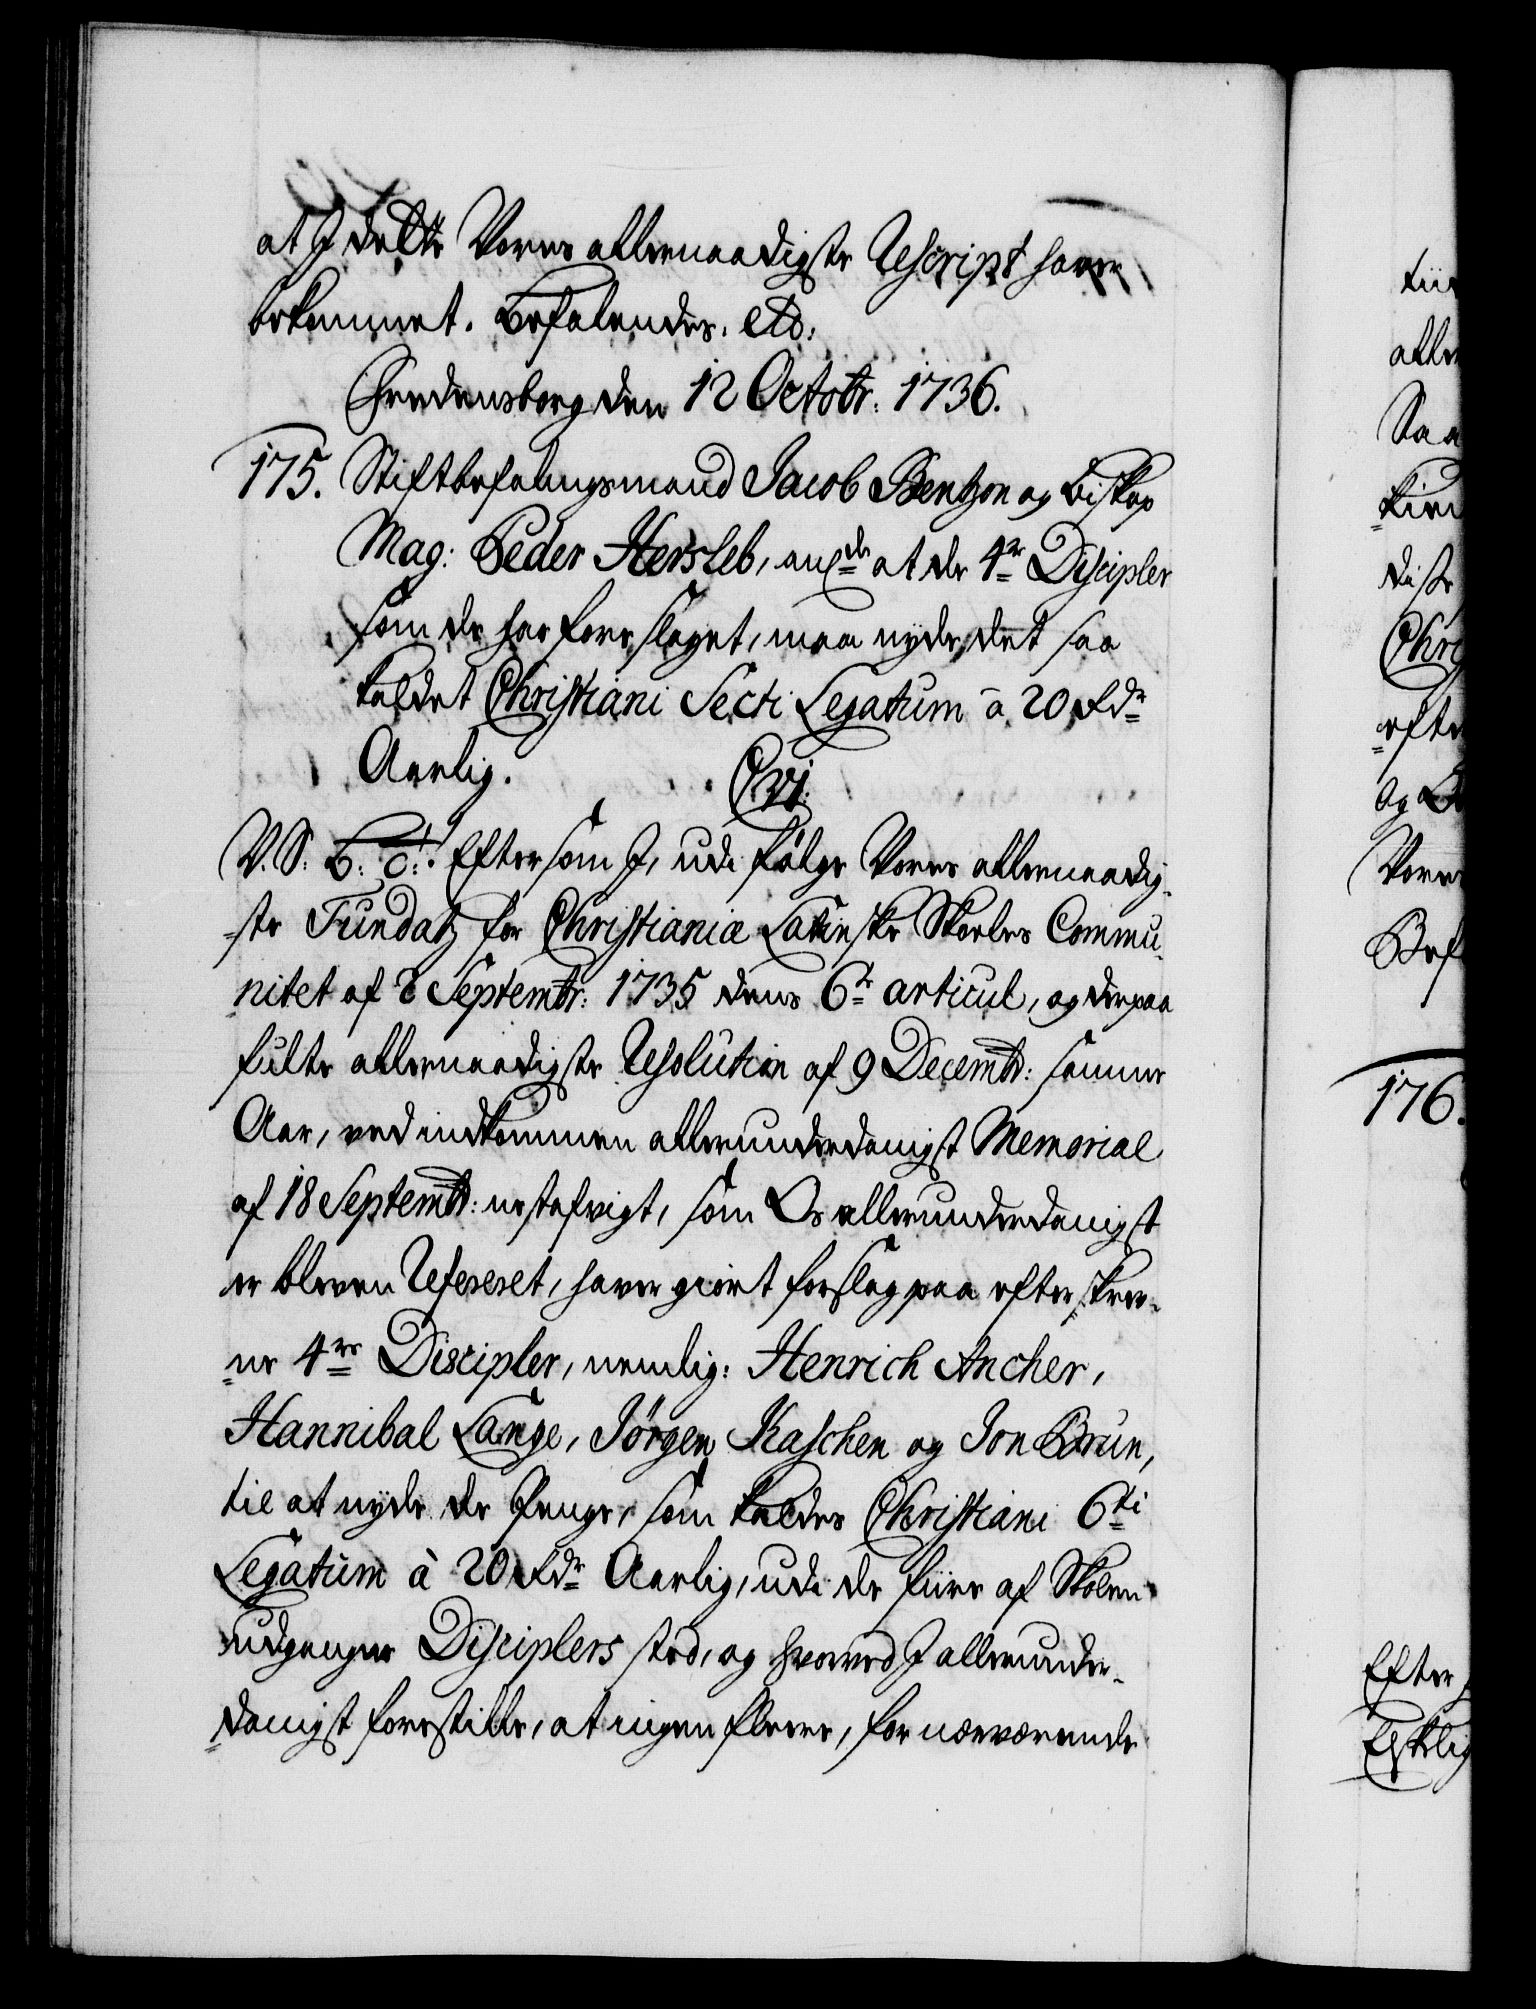 at I dette Vores allernaadigste Rescript haver
bekommet. Befalendes. etc:
Fredensborg den 12 Octobr: 1736.
175. Stiftbefalingsmand Jacob Bentzon og Biskop
Mag: Peder Hersleb, an: at de 4re Discipler
som de har foreslaget, maa nyde det saa
kaldet Christiani Sexti Legatum à 20 Rdr
Aarlig.
C 6ti
V. S: B: T: Eftersom I, udi følge Vores allernaadig-
ste Fundatz for Christianiæ Latinske Skoeles Commu-
nitet af 8 Septembr: 1735 dens 6te articul, og derpaa
fulte allernaadigste Resolution af 9 Decembr: samme
Aar, ved indkommen allerunderdanigst Memorial
af 18 Septembr: nestafvigt, som Os allerunderdanigst
er bleven Refereret, haver giort forslag paa efterskrev-
ne 4re Discipler, nemlig: Henrich Ancher,
Hannibal Lange, Jörgen Kaschen og Jon Brun,
til at nyde de Penge, som kaldes Christiani 6ti
Legatum à 20 Rdr Aarlig, udi de fiire af Skolen
udgangne Disciplers sted, og hvorved I allerunder-
danigst forestille, at ingen fleere, for nærværende
tii
aller
Saa
kiend
disse
Chri
efte
og
Vores
Bef
176.
Efter
Elskelig